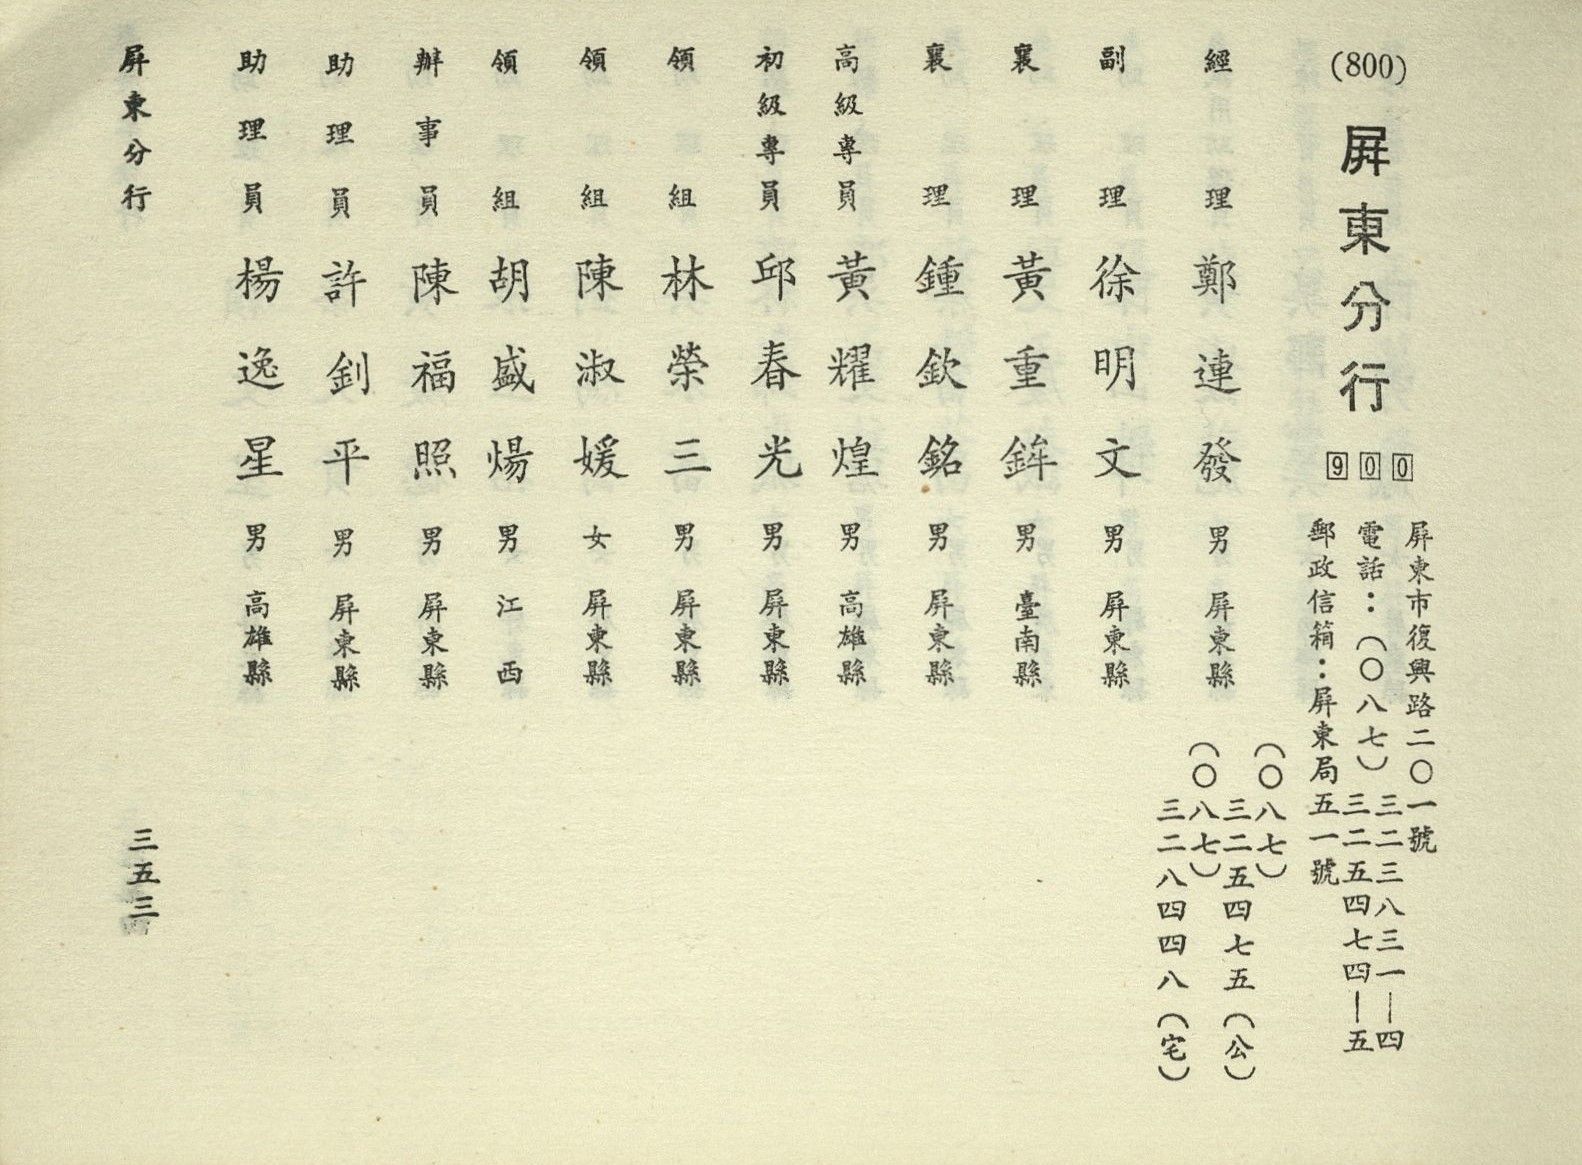 (800)
屏東分行
900
屏東市復興路二〇一號
電話：(〇八七)三二三八三一—四
三二五四七四—五
郵政信箱：屏東局五一號
經理 鄭連發 男 屏東縣
(〇八七)三二五四七五(公)
(〇八七)三二八四四八(宅)
副理 徐明文 男 屏東縣
襄理 黃重鉾 男 臺南縣
襄理 鍾欽銘 男 屏東縣
高級專員 黃耀煌 男 高雄縣
初級專員 邱春光 男 屏東縣
領組 林榮三 男 屏東縣
領組 陳淑媛 女 屏東縣
領組 胡盛煬 男 江西
辦事員 陳福照 男 屏東縣
助理員 許釗平 男 屏東縣
助理員 楊逸星 男 高雄縣
屏東分行
三五三